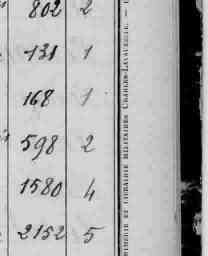 802 2
131 1
168 1
598 2
1580 4
2152 5
IMPRIMERIE ET LIBRAIRIE MILITAIRES CHARLES-LAVAUZELLE. —